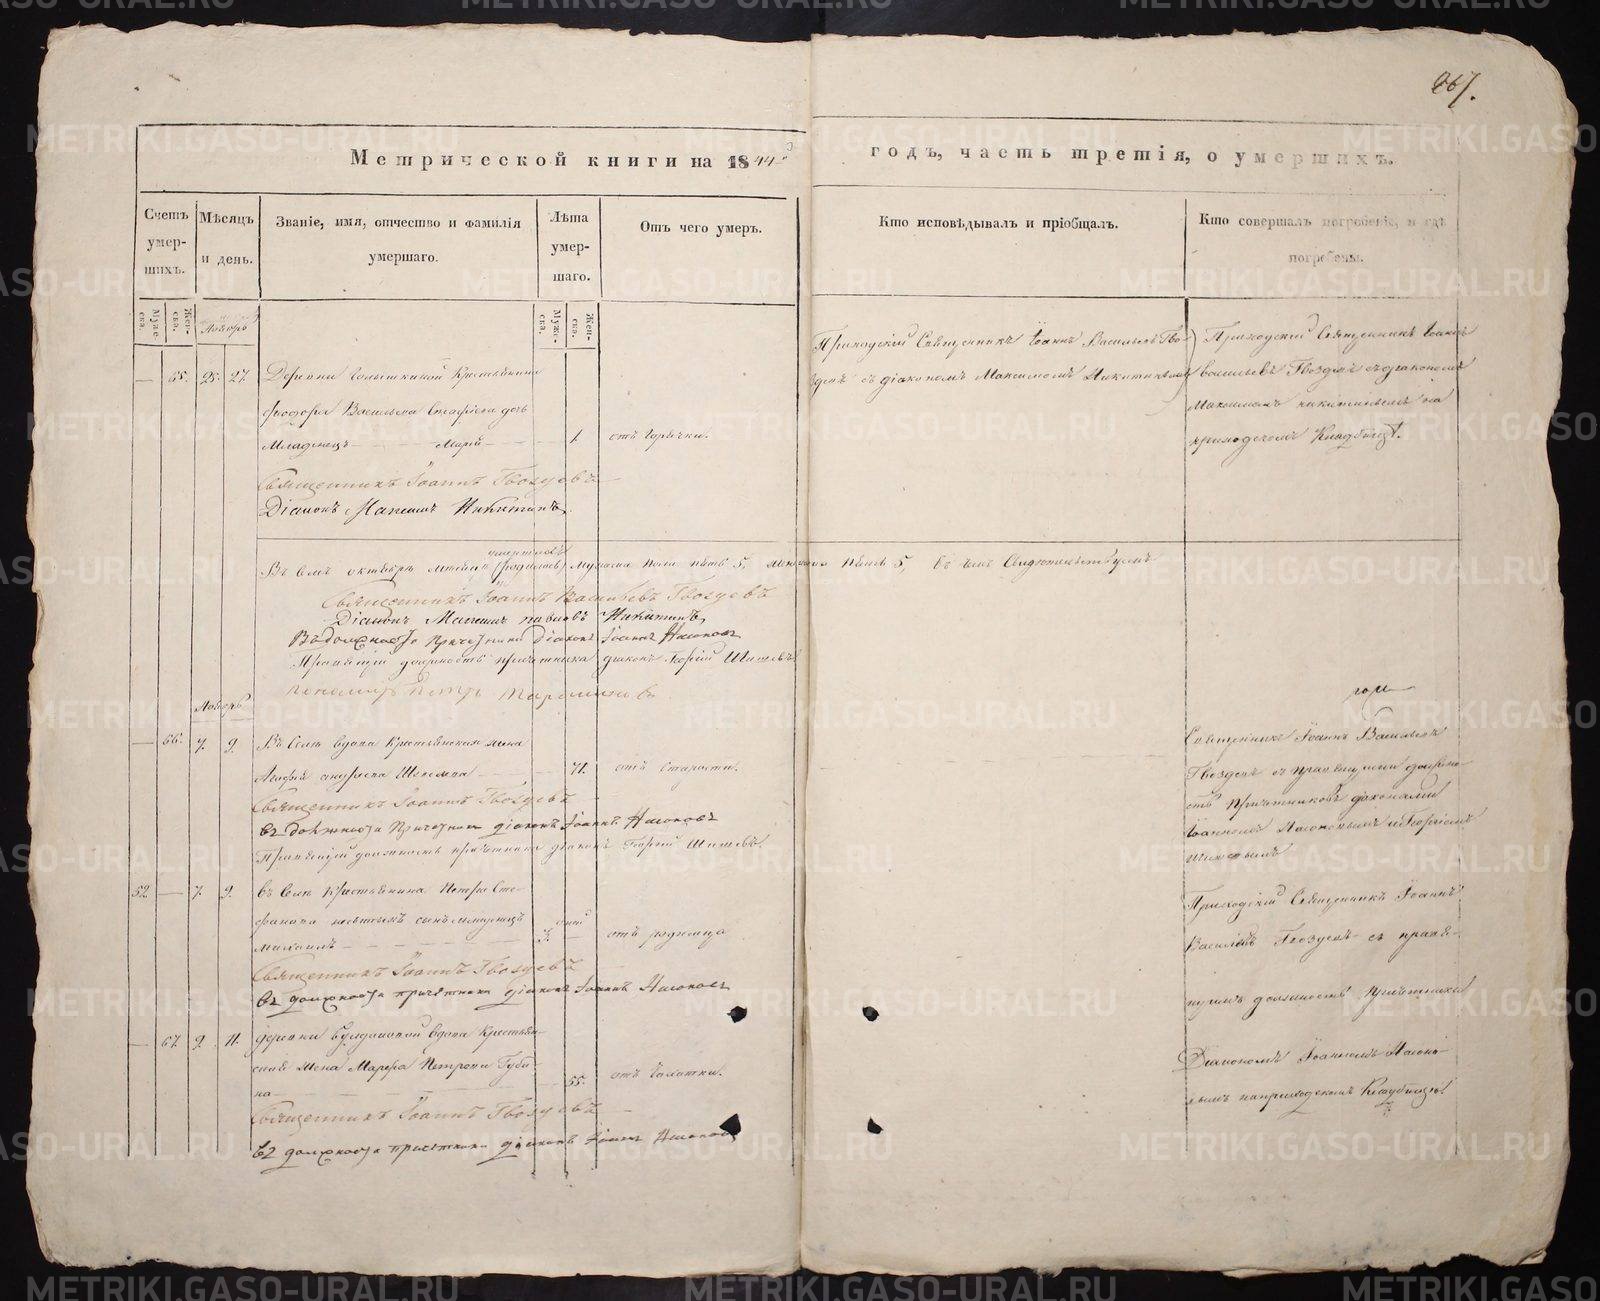 267.
Метрической книги на 1844й
годъ, часть третія, о умершихъ.
Счетъ умер-шихъ.
Мѣсяцъ и день.
Званіе, имя, отчество и фамилія умершаго.
Лѣта умер-шаго.
Отъ чего умеръ.
Кто исповѣдывалъ и пріобщалъ.
Кто совершалъ погребеніе, и гдѣ погребены.
Муже-ска.
Жен-ска.
Муже-ска.
Жен-ска.
— 65. 25. 27. Деревни Крестьянина
Васильева дочь
Младенецъ — Марія — 1. отъ Горячки.
Приходскій Священникъ Іоаннъ Васильевъ Гво-
здевъ съ діакономъ Максимомъ Никитинымъ
Приходскій Священникъ Іоаннъ
Васильевъ Гвоздевъ съ діакономъ
Максимомъ Никитинымъ на
приходскомъ Кладбищѣ.
Священникъ Іоаннъ Гвоздевъ
Діаконъ Максимъ Никитинъ
умершихъ
Въ семъ октябрѣ мѣсяцѣ (родилось) мужеска пола пять 5, женска пять 5, въ чемъ Свидѣтельствуемъ
Священникъ Іоаннъ Васильевъ Гвоздевъ
Діаконъ Максимъ Никитинъ
Въ должности причетника Діаконъ Іоаннъ Насоновъ
Правящій должность причетника діаконъ Георгій Шишевъ
Пономарь Петръ
Ноябрь
— 66. 7. 9. Въ Селѣ вдова Крестьянская жена
Агафія Андреева — 71. отъ Старости.
Священникъ Іоаннъ Васильевъ
Гвоздевъ съ правящими должно-
сть причетниковъ діаконами
Іоанномъ Насоновымъ и Георгіемъ
Шишевымъ
Священникъ Іоаннъ Гвоздевъ
въ должности Причетника діаконъ Іоаннъ Насоновъ
Правящій должность причетника діаконъ Георгій Шишевъ.
52 — 7. 9. въ Селѣ Крестьянина Петра Сте-
фанова сынъ младенецъ
Михаилъ — дней — отъ родимца
Приходскій Священникъ Іоаннъ
Васильевъ Гвоздевъ съ правя-
щимъ должность причетника
Діакономъ Іоанномъ Насоно-
вымъ на приходскомъ Кладбищѣ.
Священникъ Іоаннъ Гвоздевъ
въ должности причетника діаконъ Іоаннъ Насоновъ
— 67. 9. 11. деревни вдова Крестьян-
ская жена Марфа Петрова Губи-
на — 55. отъ Чахотки.
Священникъ Іоаннъ Гвоздевъ
въ должности причетника діаконъ Іоаннъ Насоновъ
METRIKI.GASO-URAL.RU